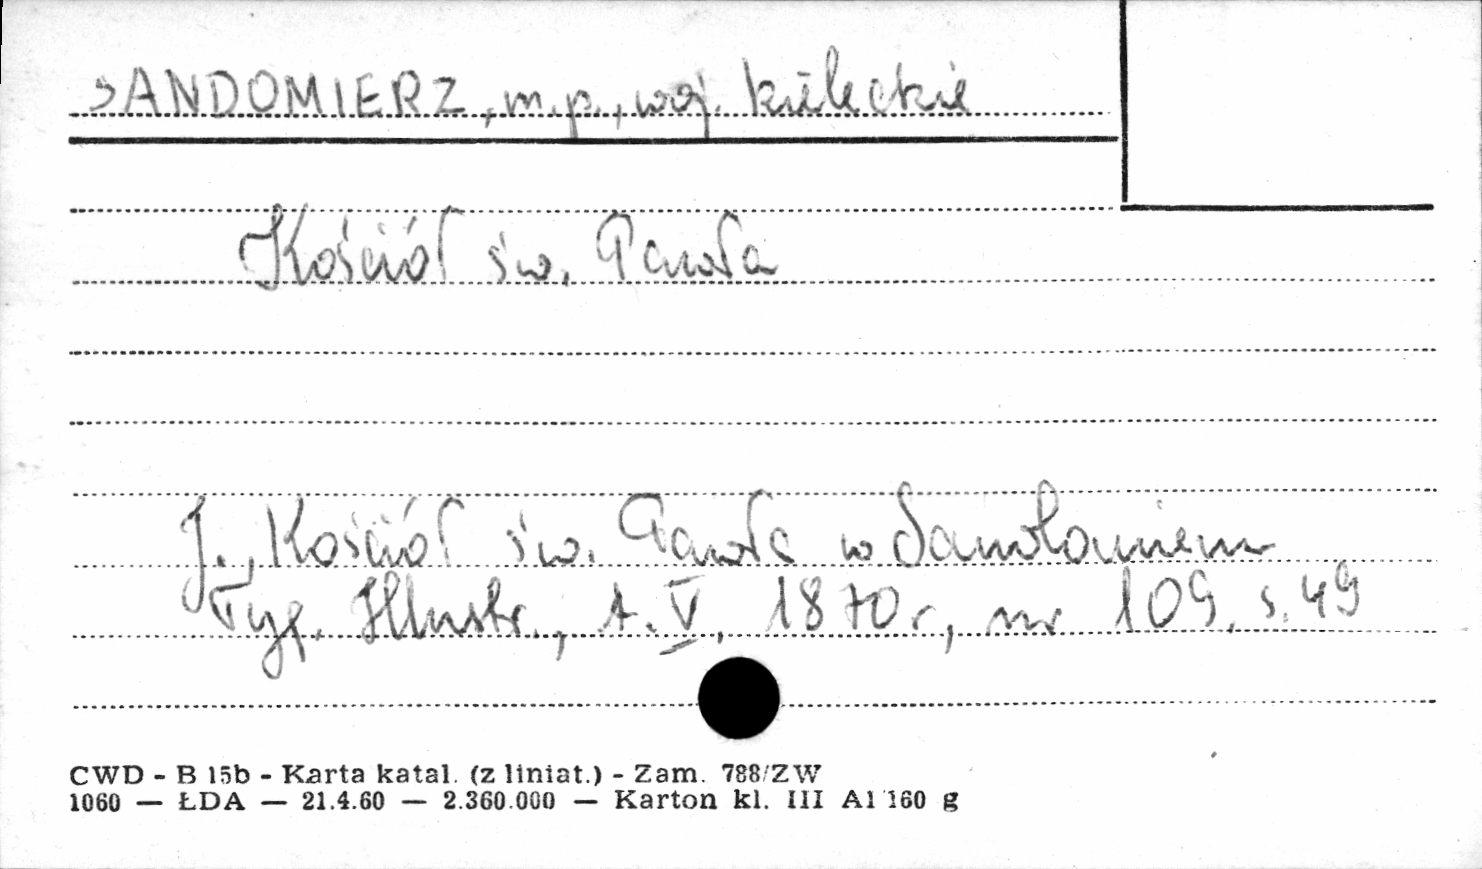 SANDOMIERZ, m.p., woj. kieleckie
Kościół św. Pawła
J., Kościół św. Pawła w Sandomierzu
Tyg. Illustr., t. V, 1870 r., nr 109, s. 49
CWD - B 15b - Karta katal. (z liniat.) - Zam. 788/ZW
1060 — ŁDA — 21.4.60 — 2.360.000 — Karton kl. III A1 160 g